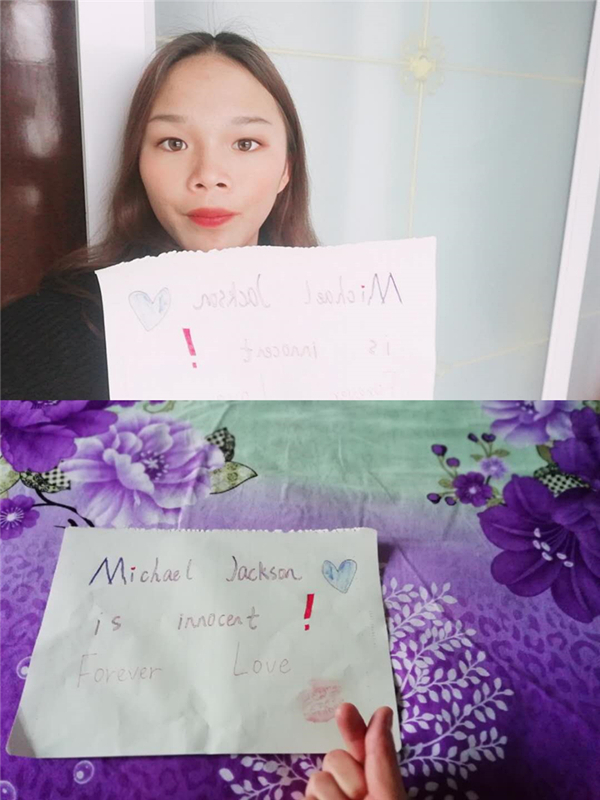 Michael Jackson
is innocent !
Michael Jackson
is innocent !
Forever Love